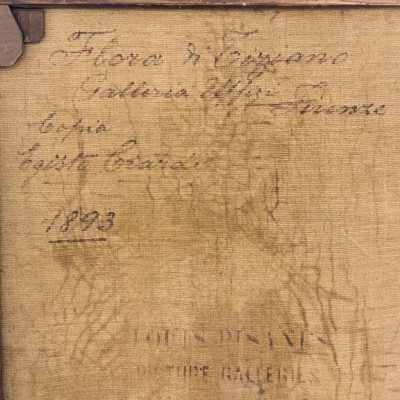 Flora di Tiziano
Galleria Uffizi Firenze
Copia
Egisto
1893
LOUIS PISANI'S
PICTURE GALLERIES